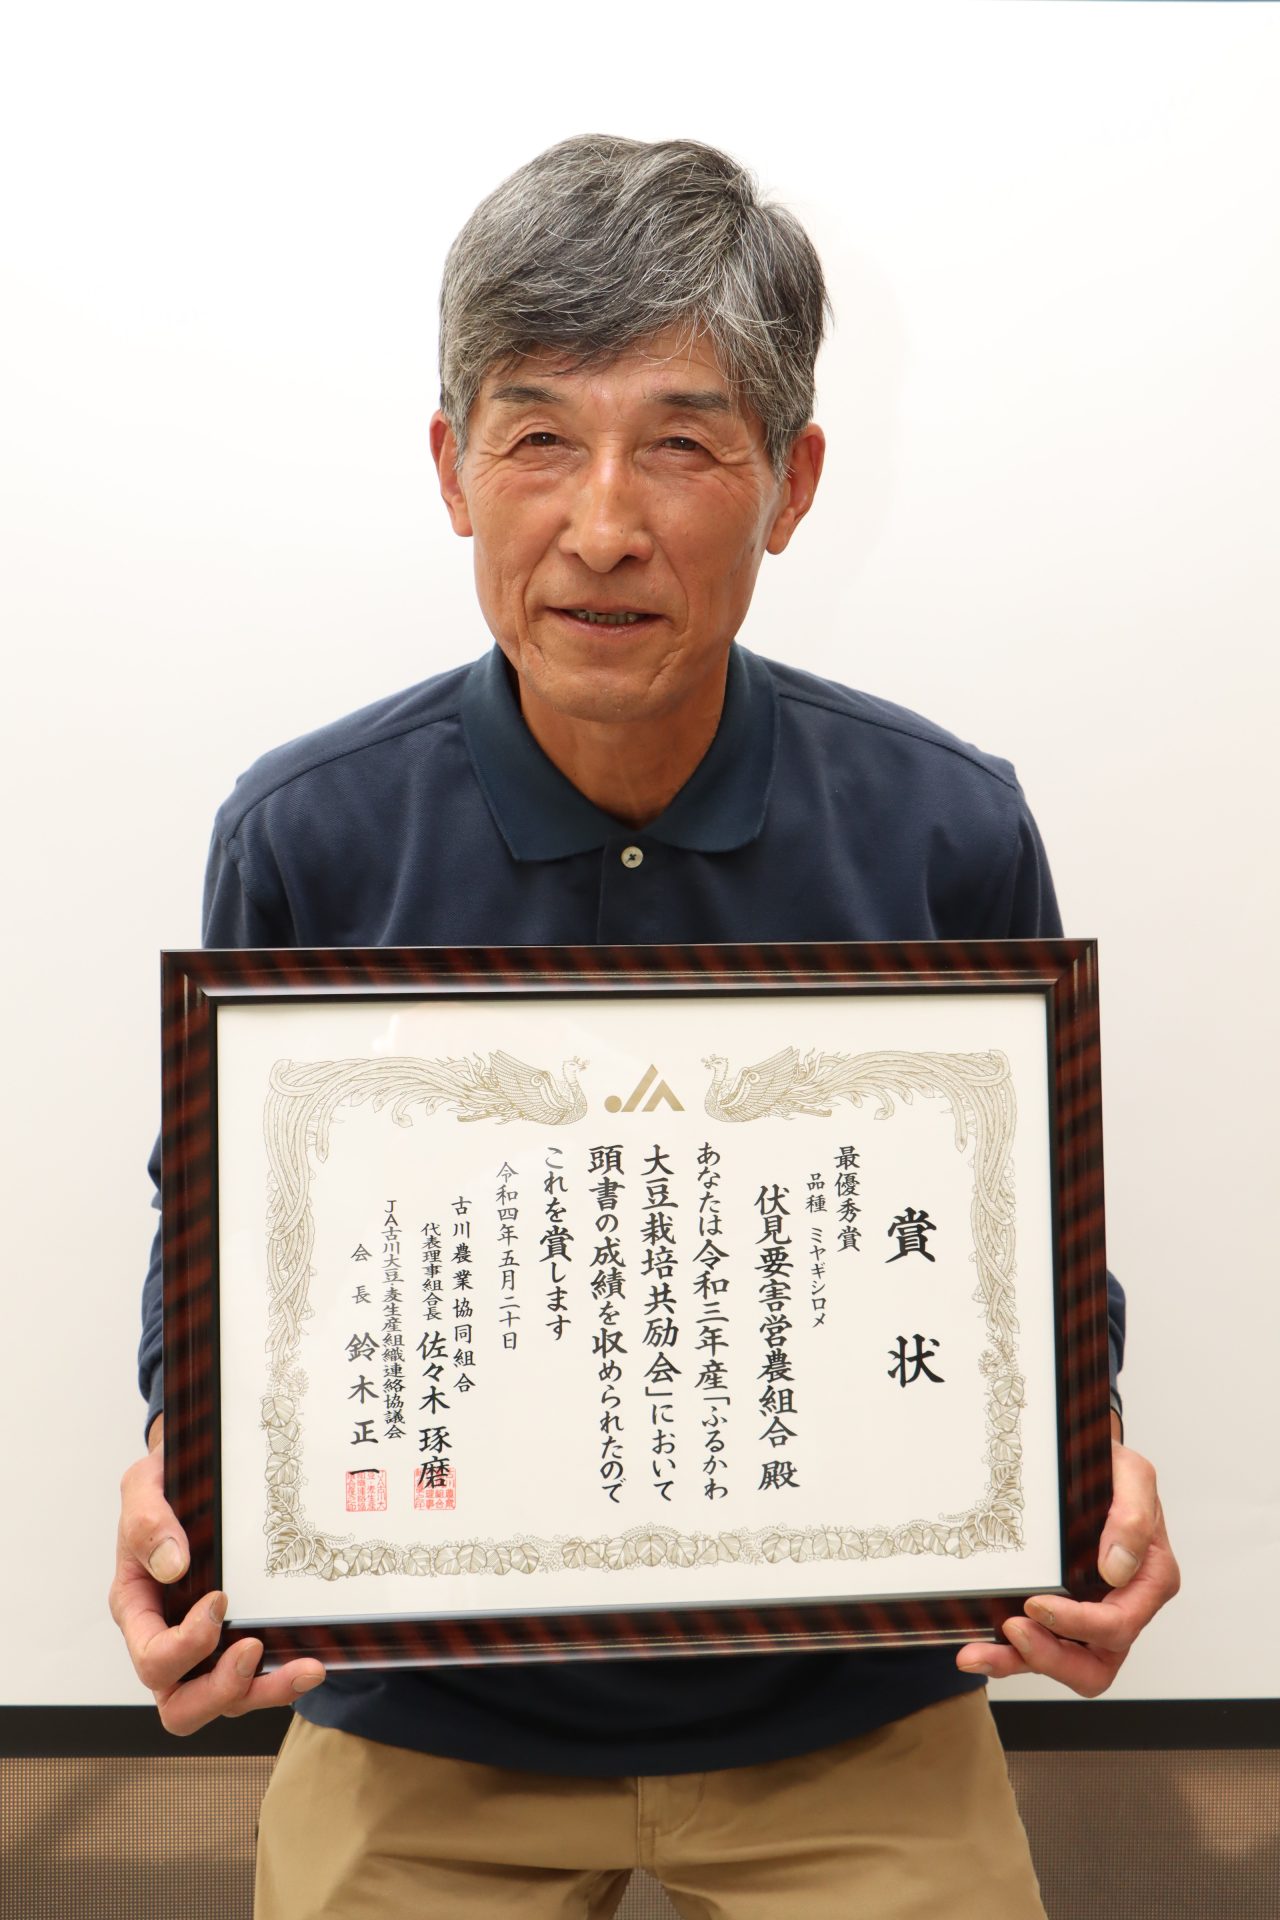 JA
賞状
最優秀賞
品種 ミヤギシロメ
伏見要害営農組合 殿
あなたは令和三年産「ふるかわ
大豆栽培共励会」において
頭書の成績を収められたので
これを賞します
令和四年五月二十日
古川農業協同組合
代表理事組合長 佐々木 琢磨
JA古川大豆・麦生産組織連絡協議会
会長 鈴木正一